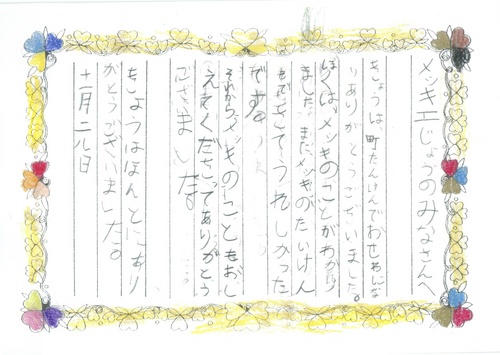 メッキエじょうのみなさんへ
きょうは、町たんけんでおせわにな
りありがとうございました。
ぼくは、メッキのことがわから
ました。またメッキのたいけん
もできてうれしかった
です。
それからメッキのこともおし
えてくださってありがとう
ございました。
きょうはほんとにあり
がとうございました。
十一月二八日